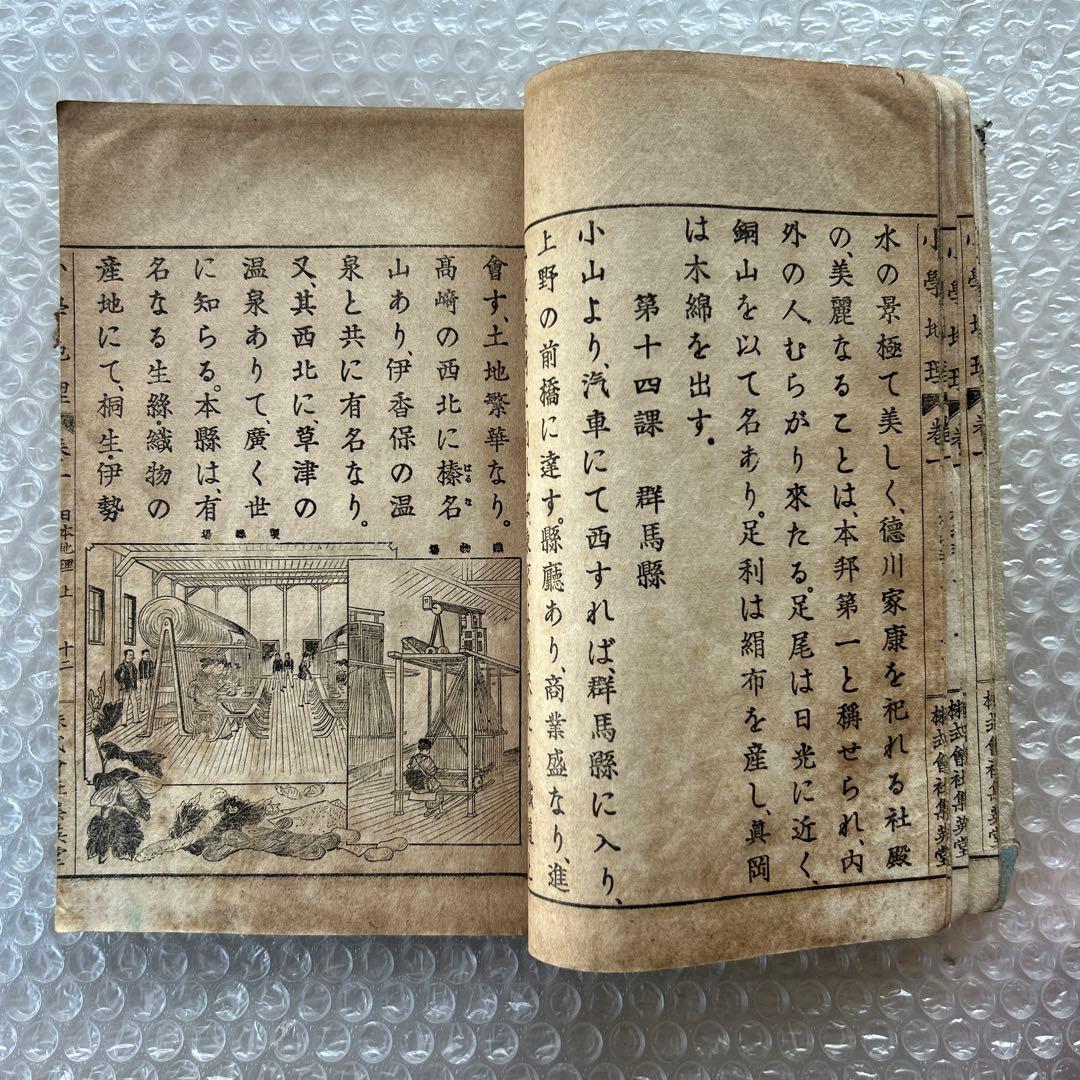 水の景極て美しく、德川家康を祀れる社殿
の、美麗なることは、本邦第一と稱せられ、內
外の人、むらがり來たる。足尾は日光に近く、
銅山を以て名あり。足利は絹布を産し、眞岡
は木綿を出す。
第十四課 群馬縣
小山より、汽車にて西すれば、群馬縣に入り、
上野の前橋に達す。縣廳あり、商業盛なり、進
會す、土地繁華なり。
高﨑の西北に榛名
はるな
山あり、伊香保の温
泉と共に有名なり。
又、其西北に、草津の
温泉ありて、廣く世
に知らる。本縣は、有
名なる生絲・織物の
産地にて、桐生・伊勢
織物場
製絲場
小學地理 卷一 日本地理 上 十二
小學地理 卷一 株式會社集英堂
小學地理 卷一 株式會社集英堂
小學地理 卷一 株式會社集英堂